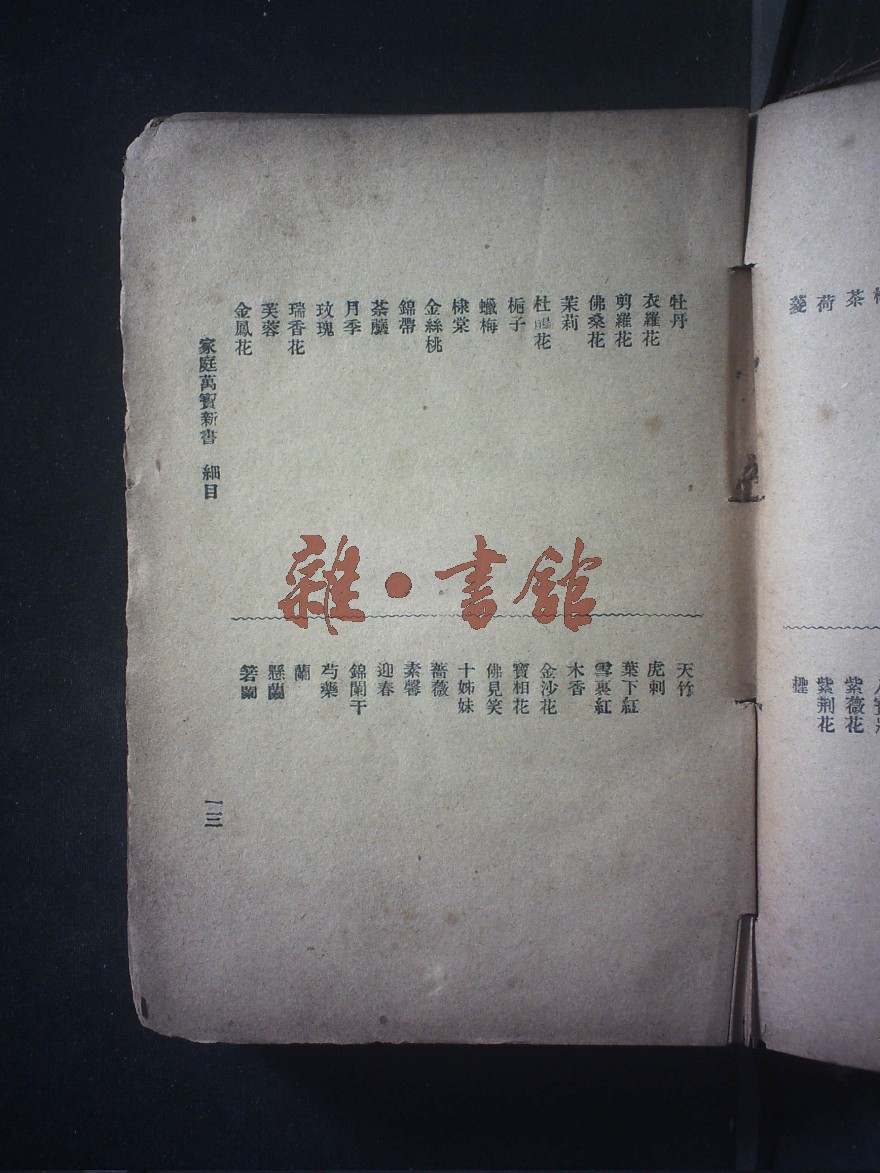 牡丹
衣羅花
剪羅花
佛桑花
茉莉
杜鵑花
梔子
蠟梅
棣棠
金絲桃
錦帶
荼䕷
月季
玫瑰
瑞香花
芙蓉
金鳳花
家庭萬寶新書 細目
天竹
虎刺
葉下紅
雪裏紅
木香
金沙花
寶相花
佛見笑
十姊妹
薔薇
素馨
迎春
錦闌干
蘭
芍藥
懸蘭
箬蘭
一三
雜·書館
茶
荷
菱
紫薇花
紫荆花